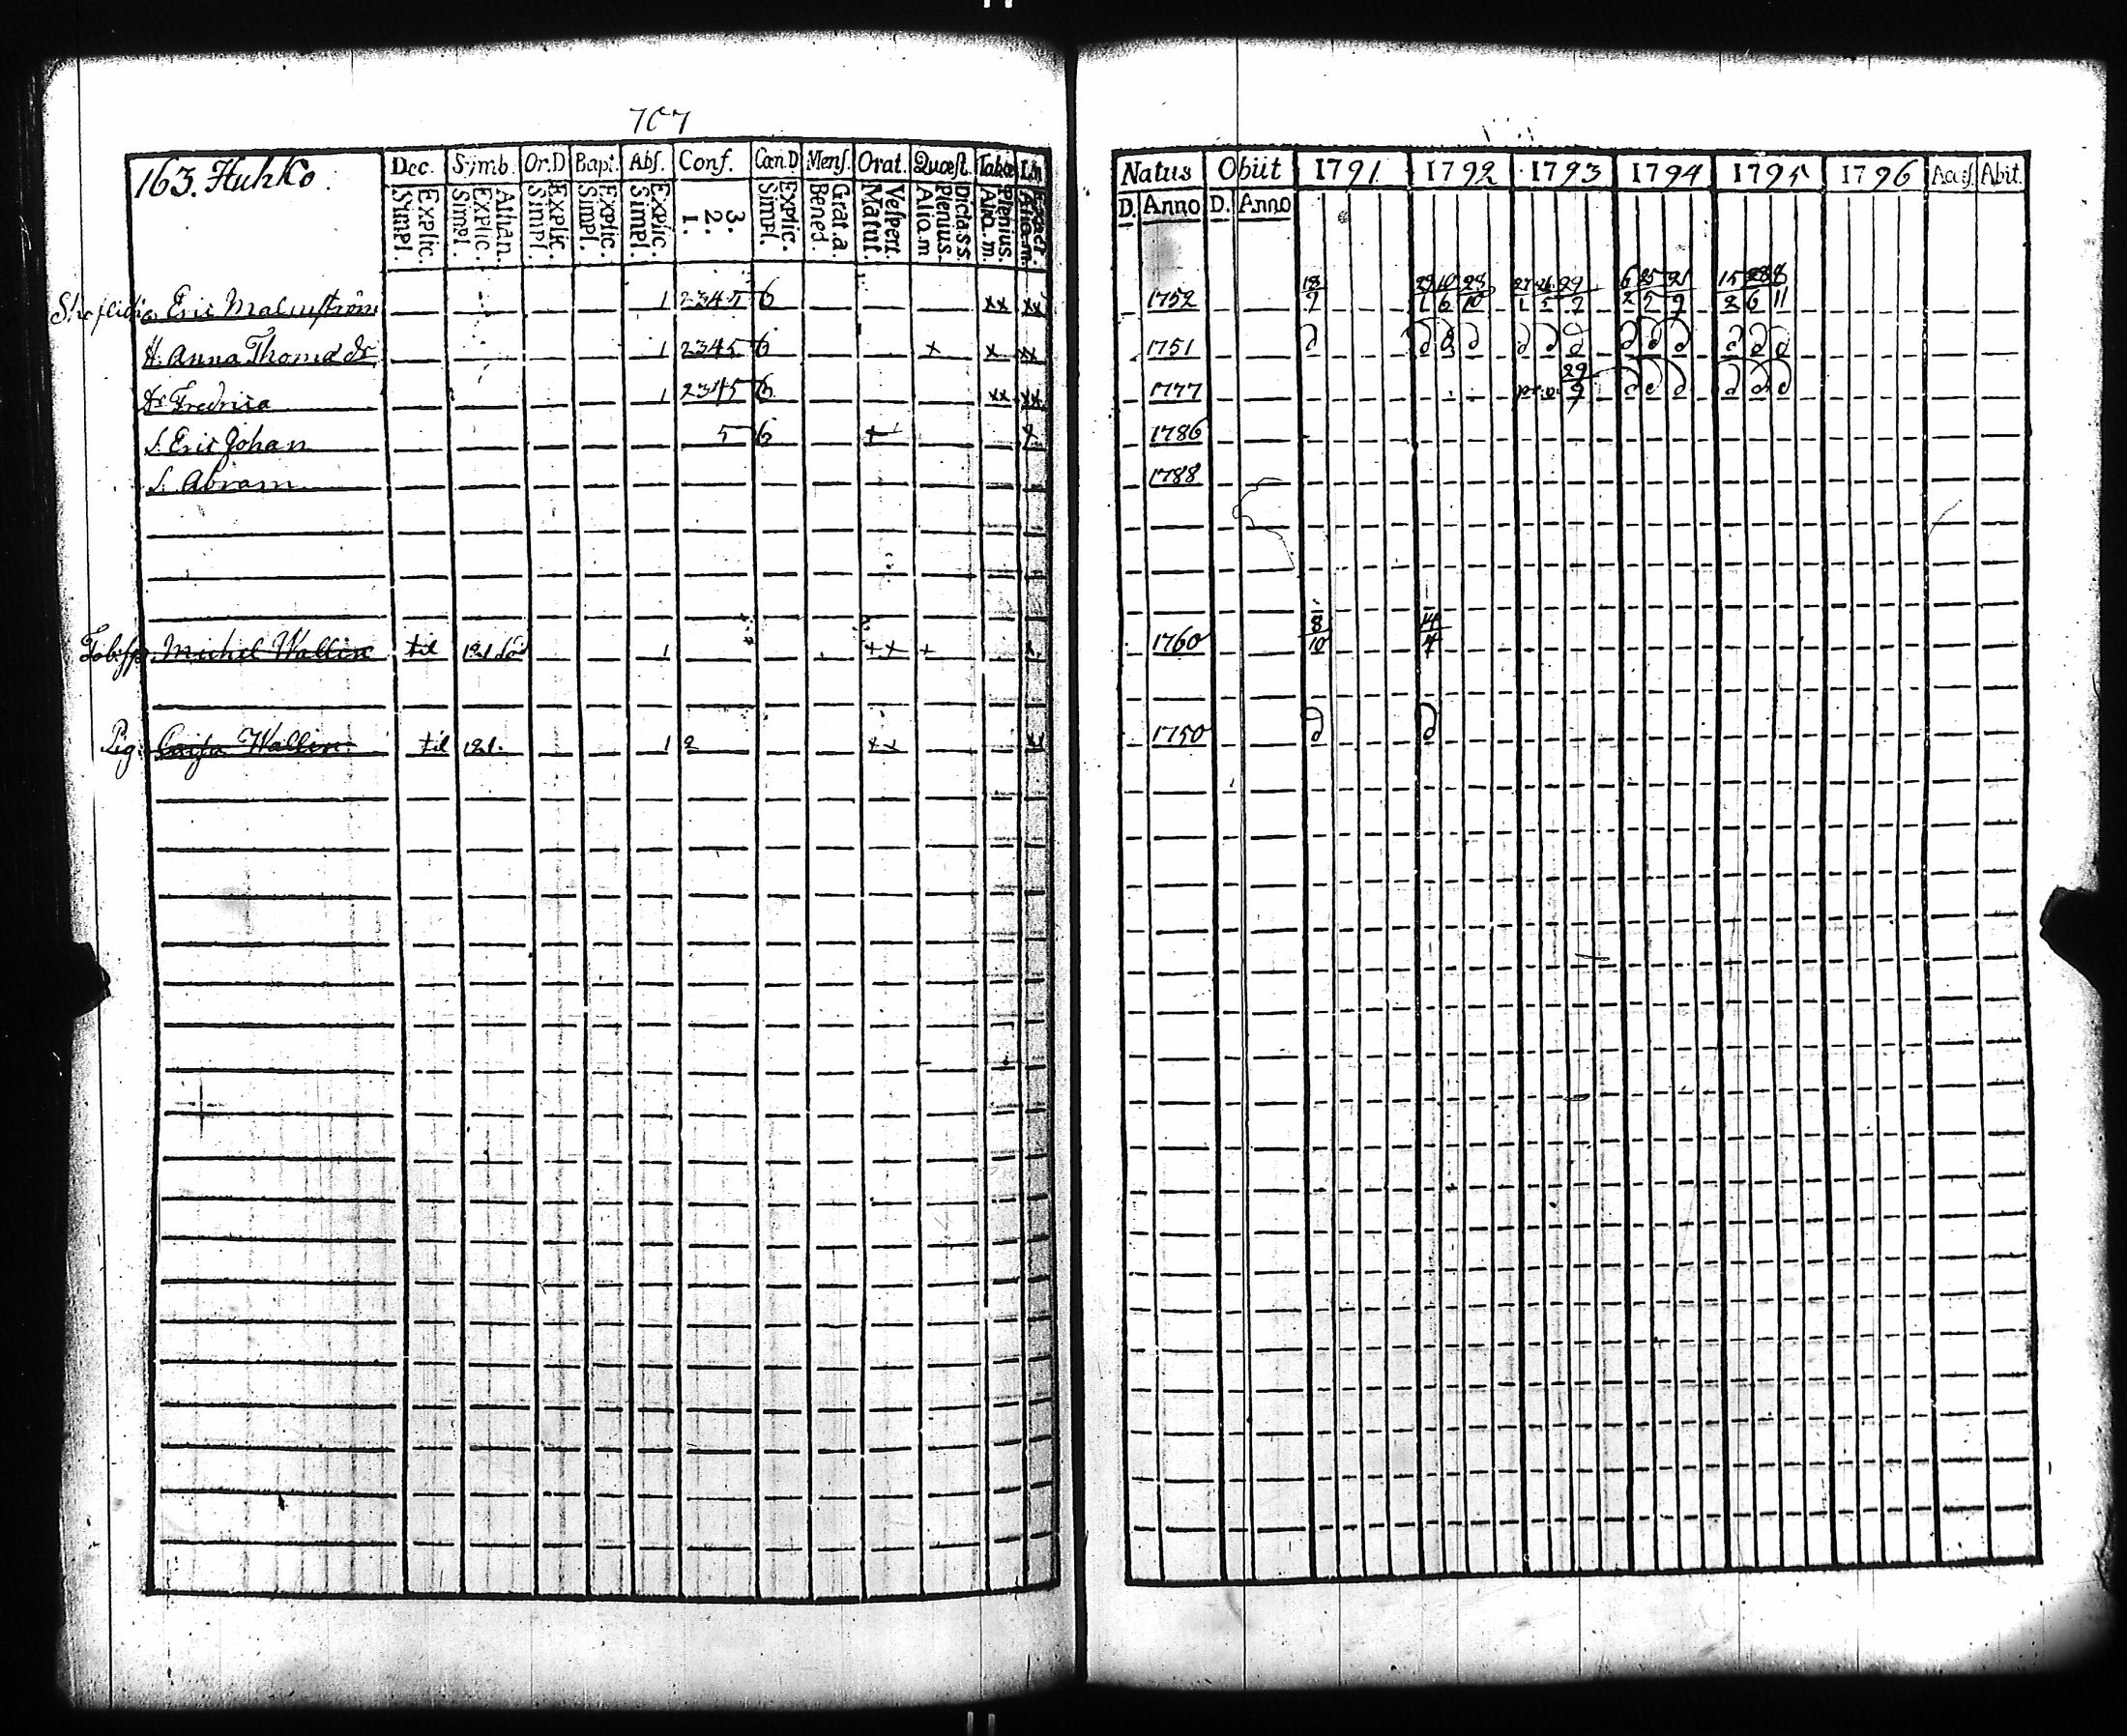 707
163. Huhko Dec. Symb. Or.D Bapt. Abs. Conf. Can.D Mens. Orat. Quæst. Tabœ
Explic. Simpl. Athan. Explic. Simpl. Explic. Simpl. Explic. Simpl. Explic. Simpl. 3. 2. 1. Explic. Simpl. Grat.a. Bened. Vespert. Matut. Dicta SS Plenius. Alio.m Plenius. Alio.m. Exact. Alio.m.
Natus Obiit 1791 1792 1793 1794 1795 1796 Access. Abit.
D. Anno D. Anno
Eric Malmström 1 2345 6 xx xx 1752 18/9 29/1 10/6 28/10 27/1 26/5 29/9 6/2 25/5 21/9 15/2 28/6 8/11
H. Anna Thomæ dr 1 2345 6 x x xx 1751 d d d d d d d d d d d d d
Dr Fredrica 1 2345 6 xx xx 1777 29/9 d d d d d d
S. Eric Johan 5 6 + x 1786
S. Abram 1788
Michel Wallin til 121 1 ++ + 1760 8/10 14/4
Caisa Wallin til 121. 1 2 ++ 1750 d d